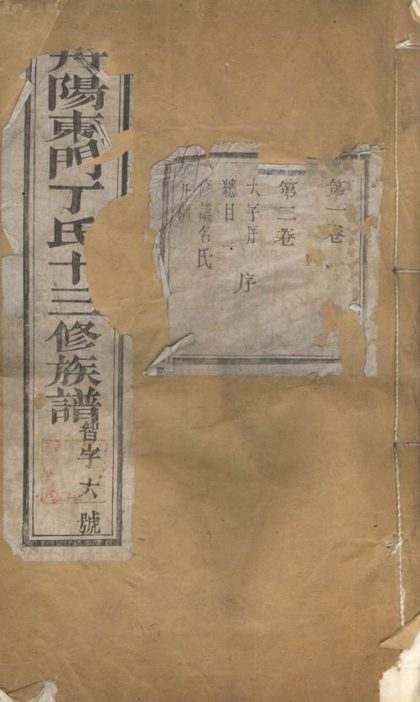 丹陽東門丁氏十三修族譜
智字六號
第一卷
第二卷
序
總目
修譜名氏
凡例